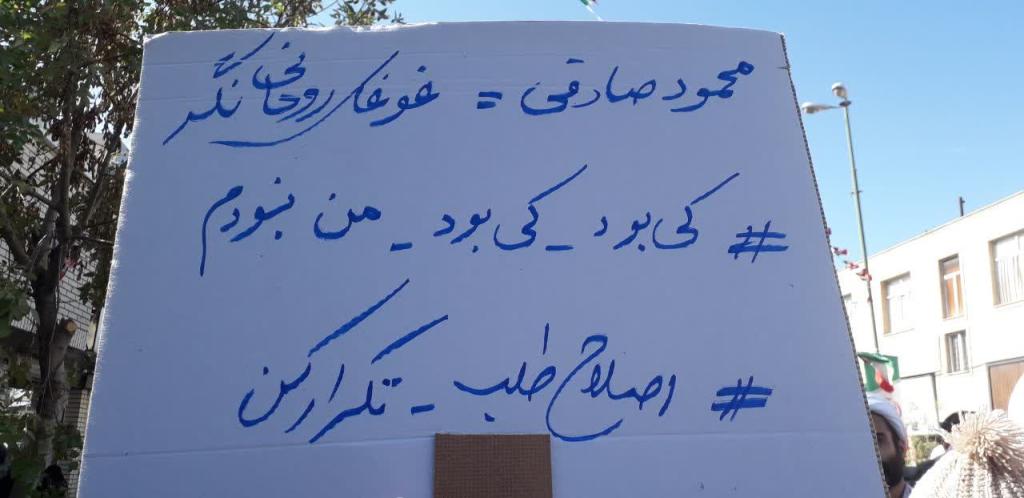 محمود صادقی = غوغای روحانی نگر
# کی بود - کی بود - من نبودم
# اصلاح طلب - تکرار کن